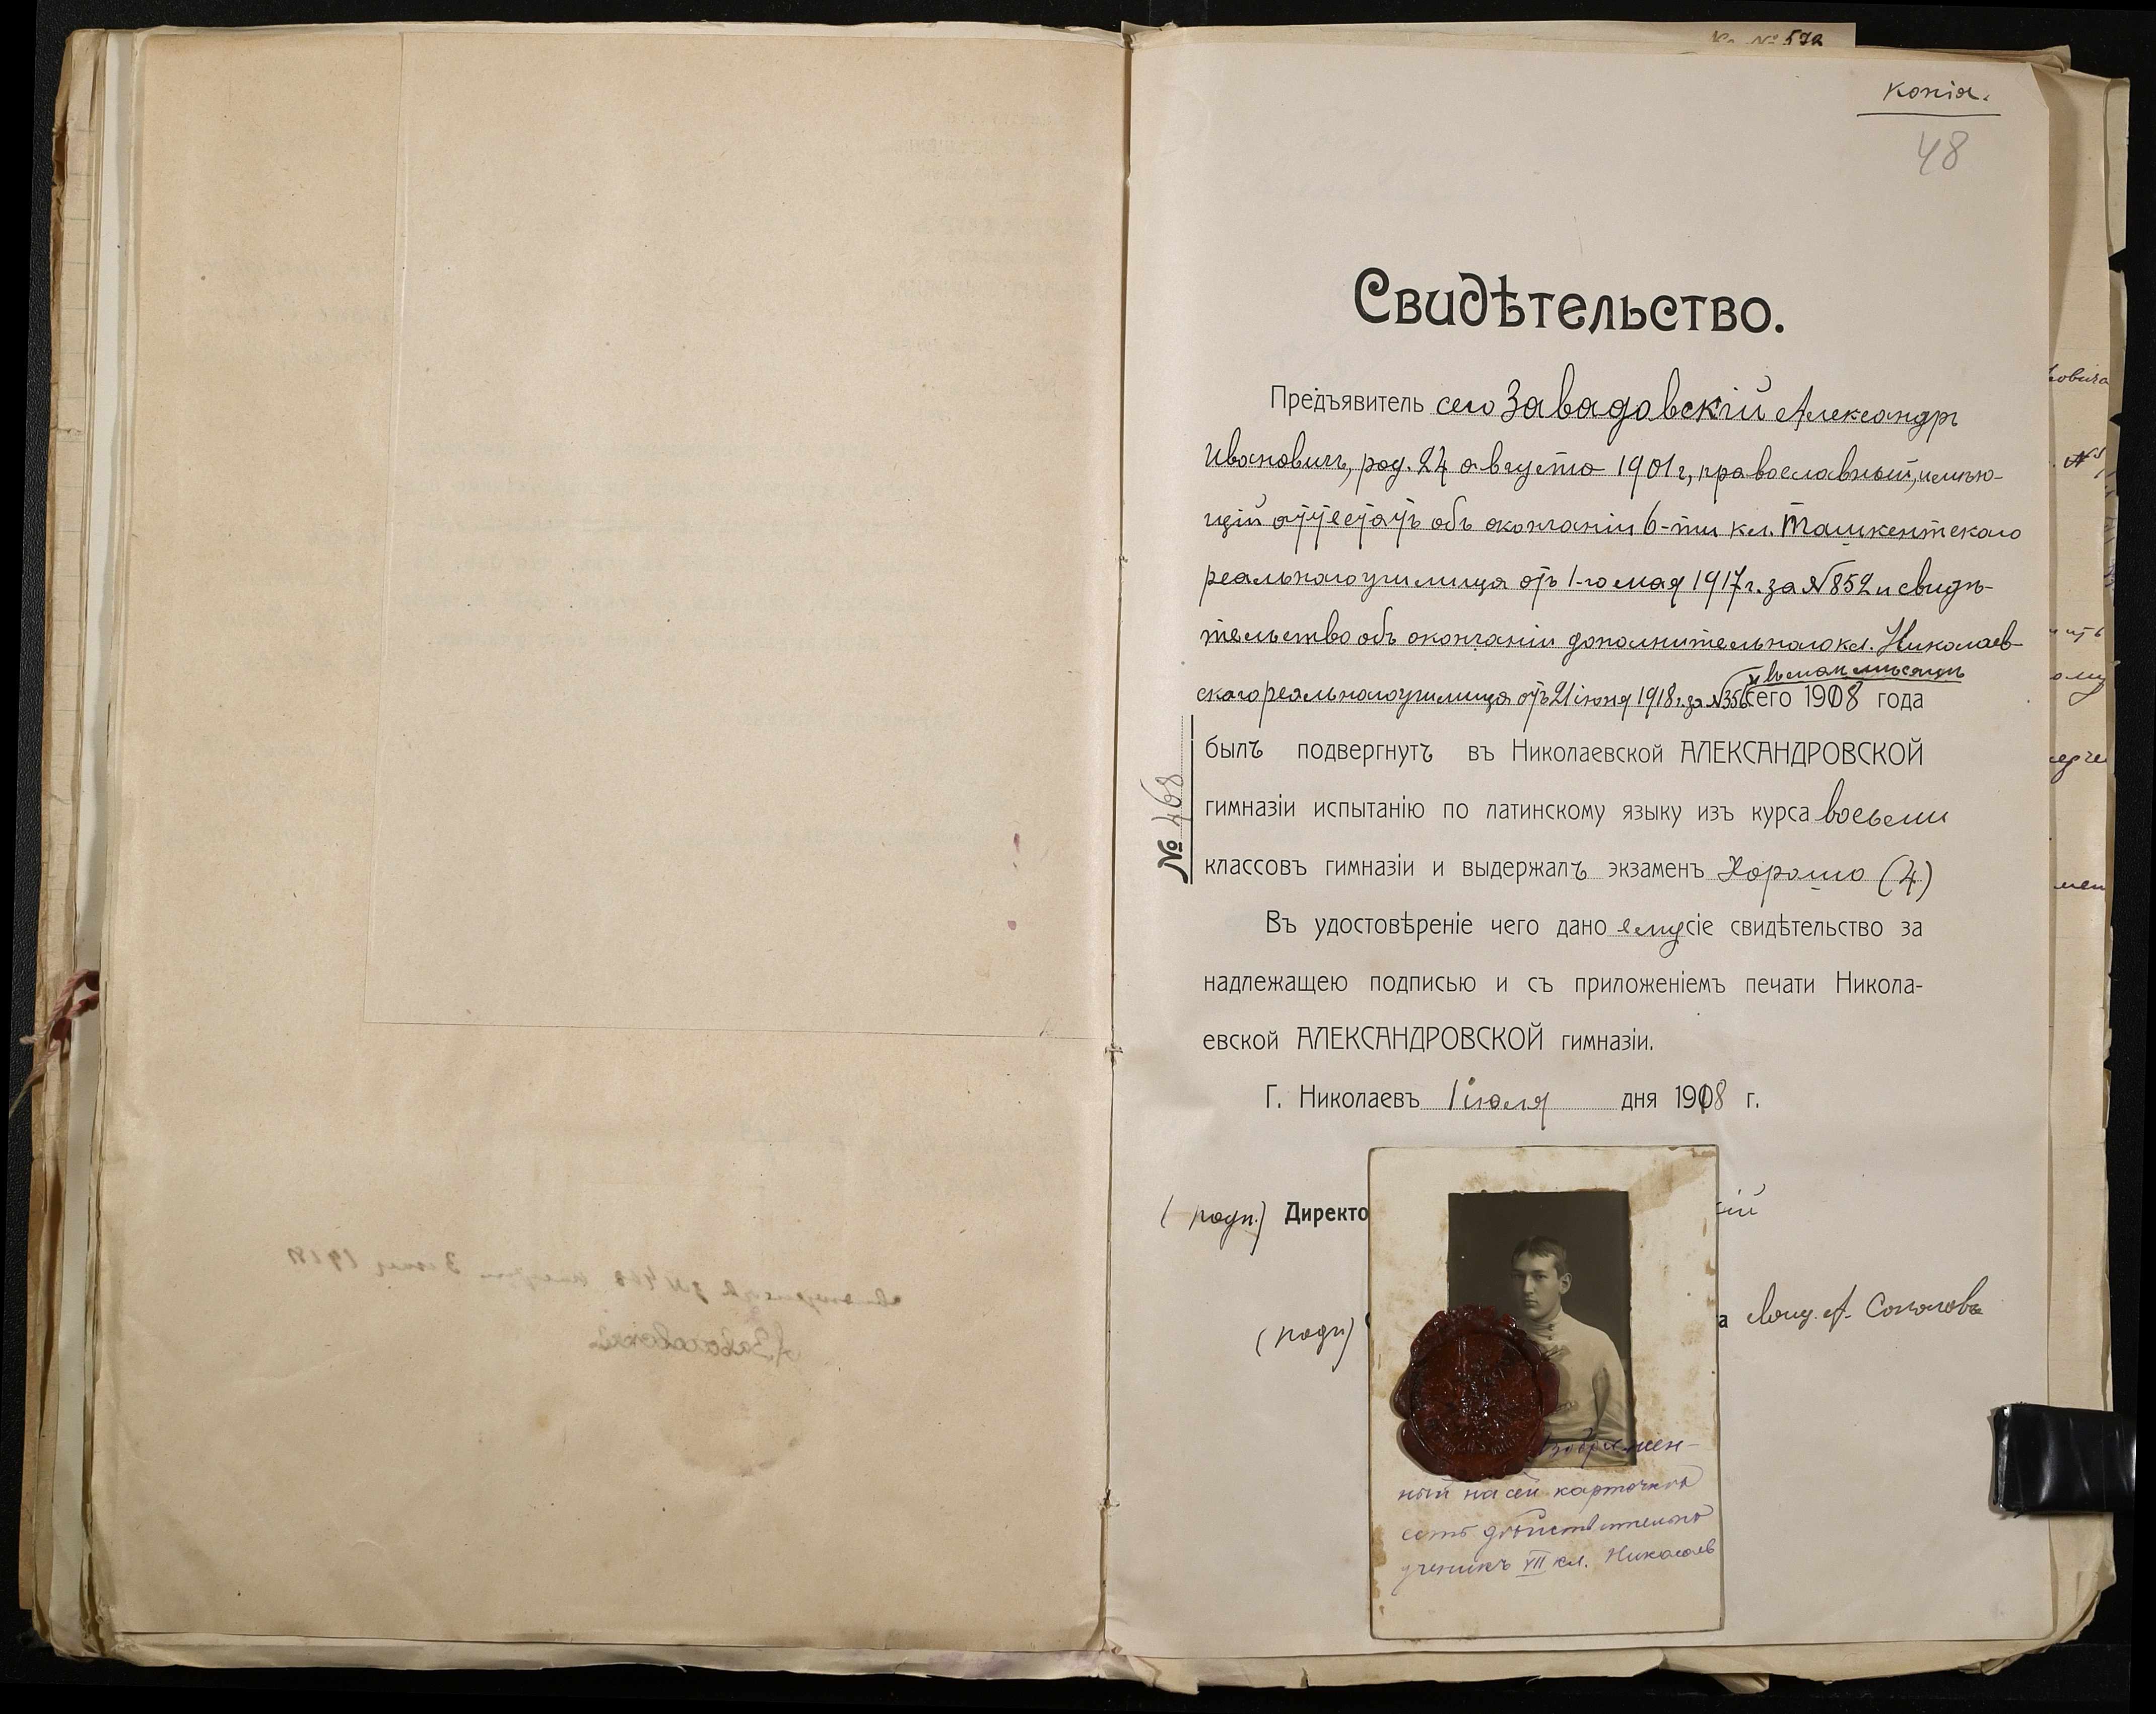 № 572
Копія.
48
Свидѣтельство.
Предъявитель сего Завадовскій Александръ
Ивановичъ, род. 24 августа 1901 г., православный, имѣю-
щій аттестатъ объ окончаніи 6-ти кл. Ташкентскаго
реальнаго училища отъ 1-го мая 1917 г. за № 852 и свидѣ-
тельство объ окончаніи дополнительнаго кл. Николаев-
въ маѣ мѣсяцѣ
скаго реальнаго училища отъ 21 іюня 1918 г. за № 356 сего 1918 года
былъ подвергнутъ въ Николаевской АЛЕКСАНДРОВСКОЙ
гимназіи испытанію по латинскому языку изъ курса восьми
классовъ гимназіи и выдержалъ экзаменъ Хорошо (4)
№ 468
Въ удостовѣреніе чего дано ему сіе свидѣтельство за
надлежащею подписью и съ приложеніемъ печати Никола-
евской АЛЕКСАНДРОВСКОЙ гимназіи.
Г. Николаевъ 1 іюля дня 1918 г.
(подп.) Директо
кій
(подп) а А. Соколовъ
Изображен-
ный на сей карточкѣ
есть дѣйствительно
ученикъ VII кл. Николаев